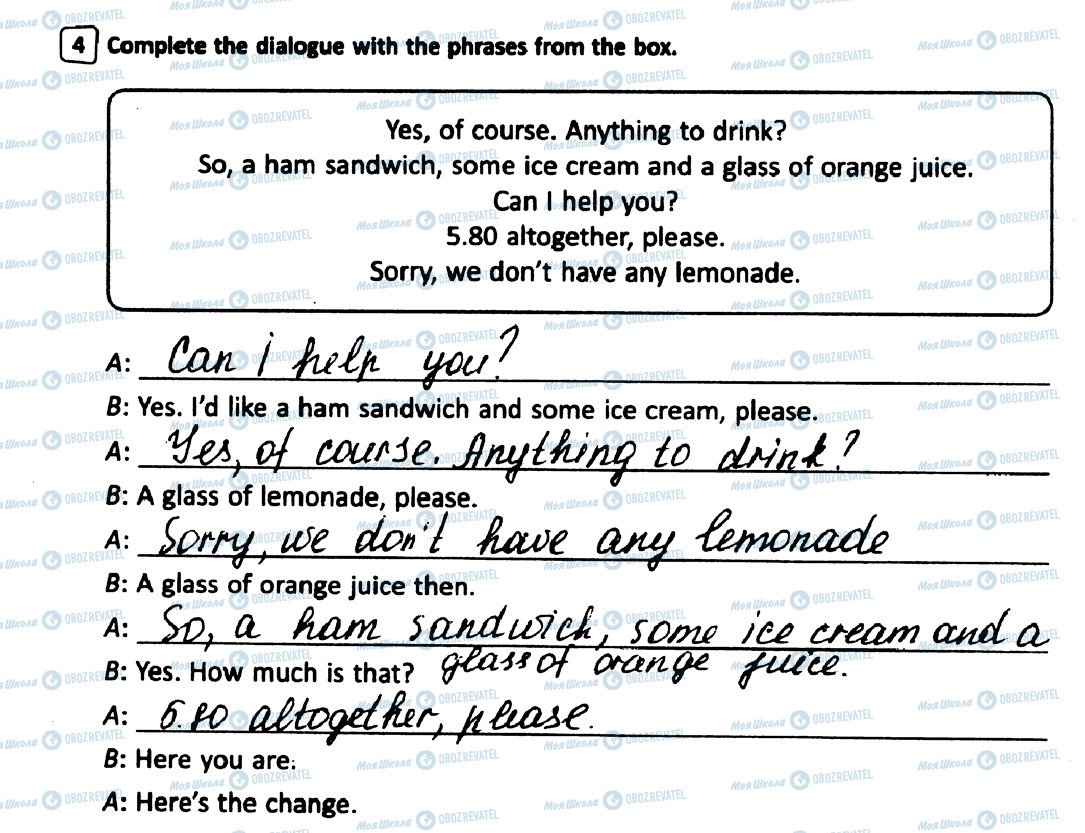 4 Complete the dialogue with the phrases from the box.
Yes, of course. Anything to drink?
So, a ham sandwich, some ice cream and a glass of orange juice.
Can I help you?
5.80 altogether, please.
Sorry, we don't have any lemonade.
A: Can i help you?
B: Yes. I'd like a ham sandwich and some ice cream, please.
A: Yes, of course. Anything to drink?
B: A glass of lemonade, please.
A: Sorry, we don't have any lemonade
B: A glass of orange juice then.
A: So, a ham sandwich, some ice cream and a
B: Yes. How much is that? glass of orange juice.
A: 5.80 altogether, please.
B: Here you are.
A: Here's the change.
МояШкола OBOZREVATEL